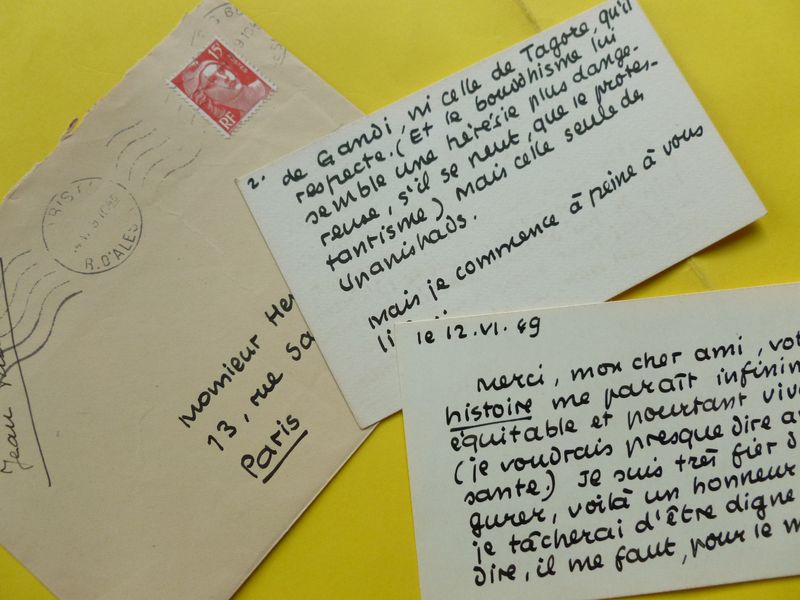 15F
RF
R. D'ALES
Jean
Monsieur He
13, rue Sa
Paris
2. de Gandi, ni celle de Tagore, qu'il
respecte. (Et le bouddhisme lui
semble une hérésie plus dange-
reuse, s'il se peut, que le protes-
tantisme) Mais celle seule des
Upanishads.
Mais je commence à peine à vous
li
le 12.VI.49
Merci, mon cher ami, vot
histoire me paraît infinim
équitable et pourtant viva
(je voudrais presque dire a
sante.) Je suis très fier d
gurer, voilà un honneur
je tâcherai d'être digne
dire, il me faut, pour le m